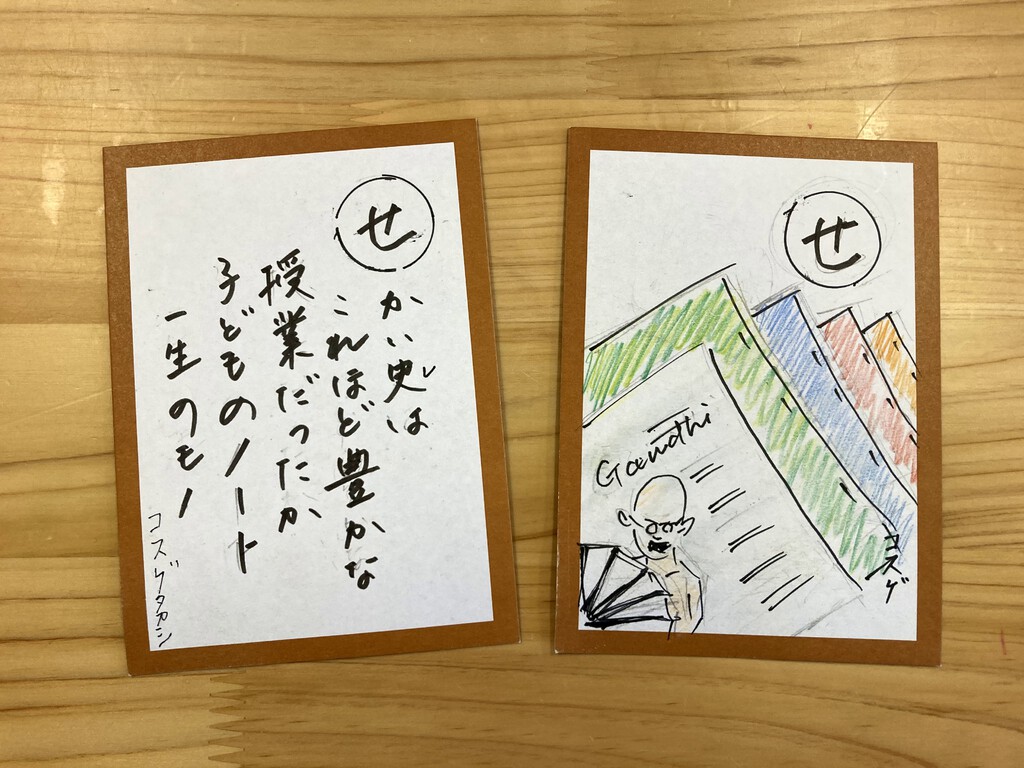 せ
かい史は
シ
これほど豊かな
授業だったか
子どものノート
一生のモノ
コスゲタカシ
せ
Gandhi
コスゲ